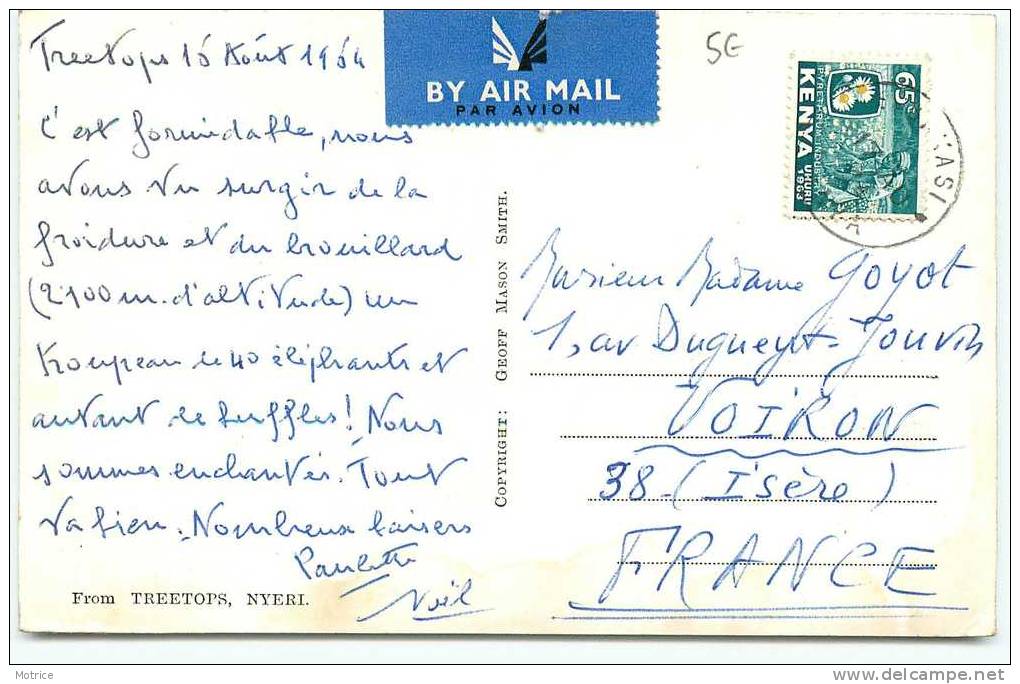 Treetops 16 Août 1964
C'est formidable, nous
avons vu surgir de la
froidure et du brouillard
(2100 m. d'altitude) un
troupeau de 40 éléphants et
autant de buffles! Nous
sommes enchantés. Tout
va bien. Nombreux baisers
Paulette
Noël
From TREETOPS, NYERI.
BY AIR MAIL
PAR AVION
5€
COPYRIGHT: GEOFF MASON SMITH.
65c
PYRETHRUM INDUSTRY
KENYA
UHURU 1963
Monsieur Madame Goyot
1, av Dugueyt-Jouvin
VOIRON
38 - (Isère)
FRANCE
Motrice
www.delcampe.net